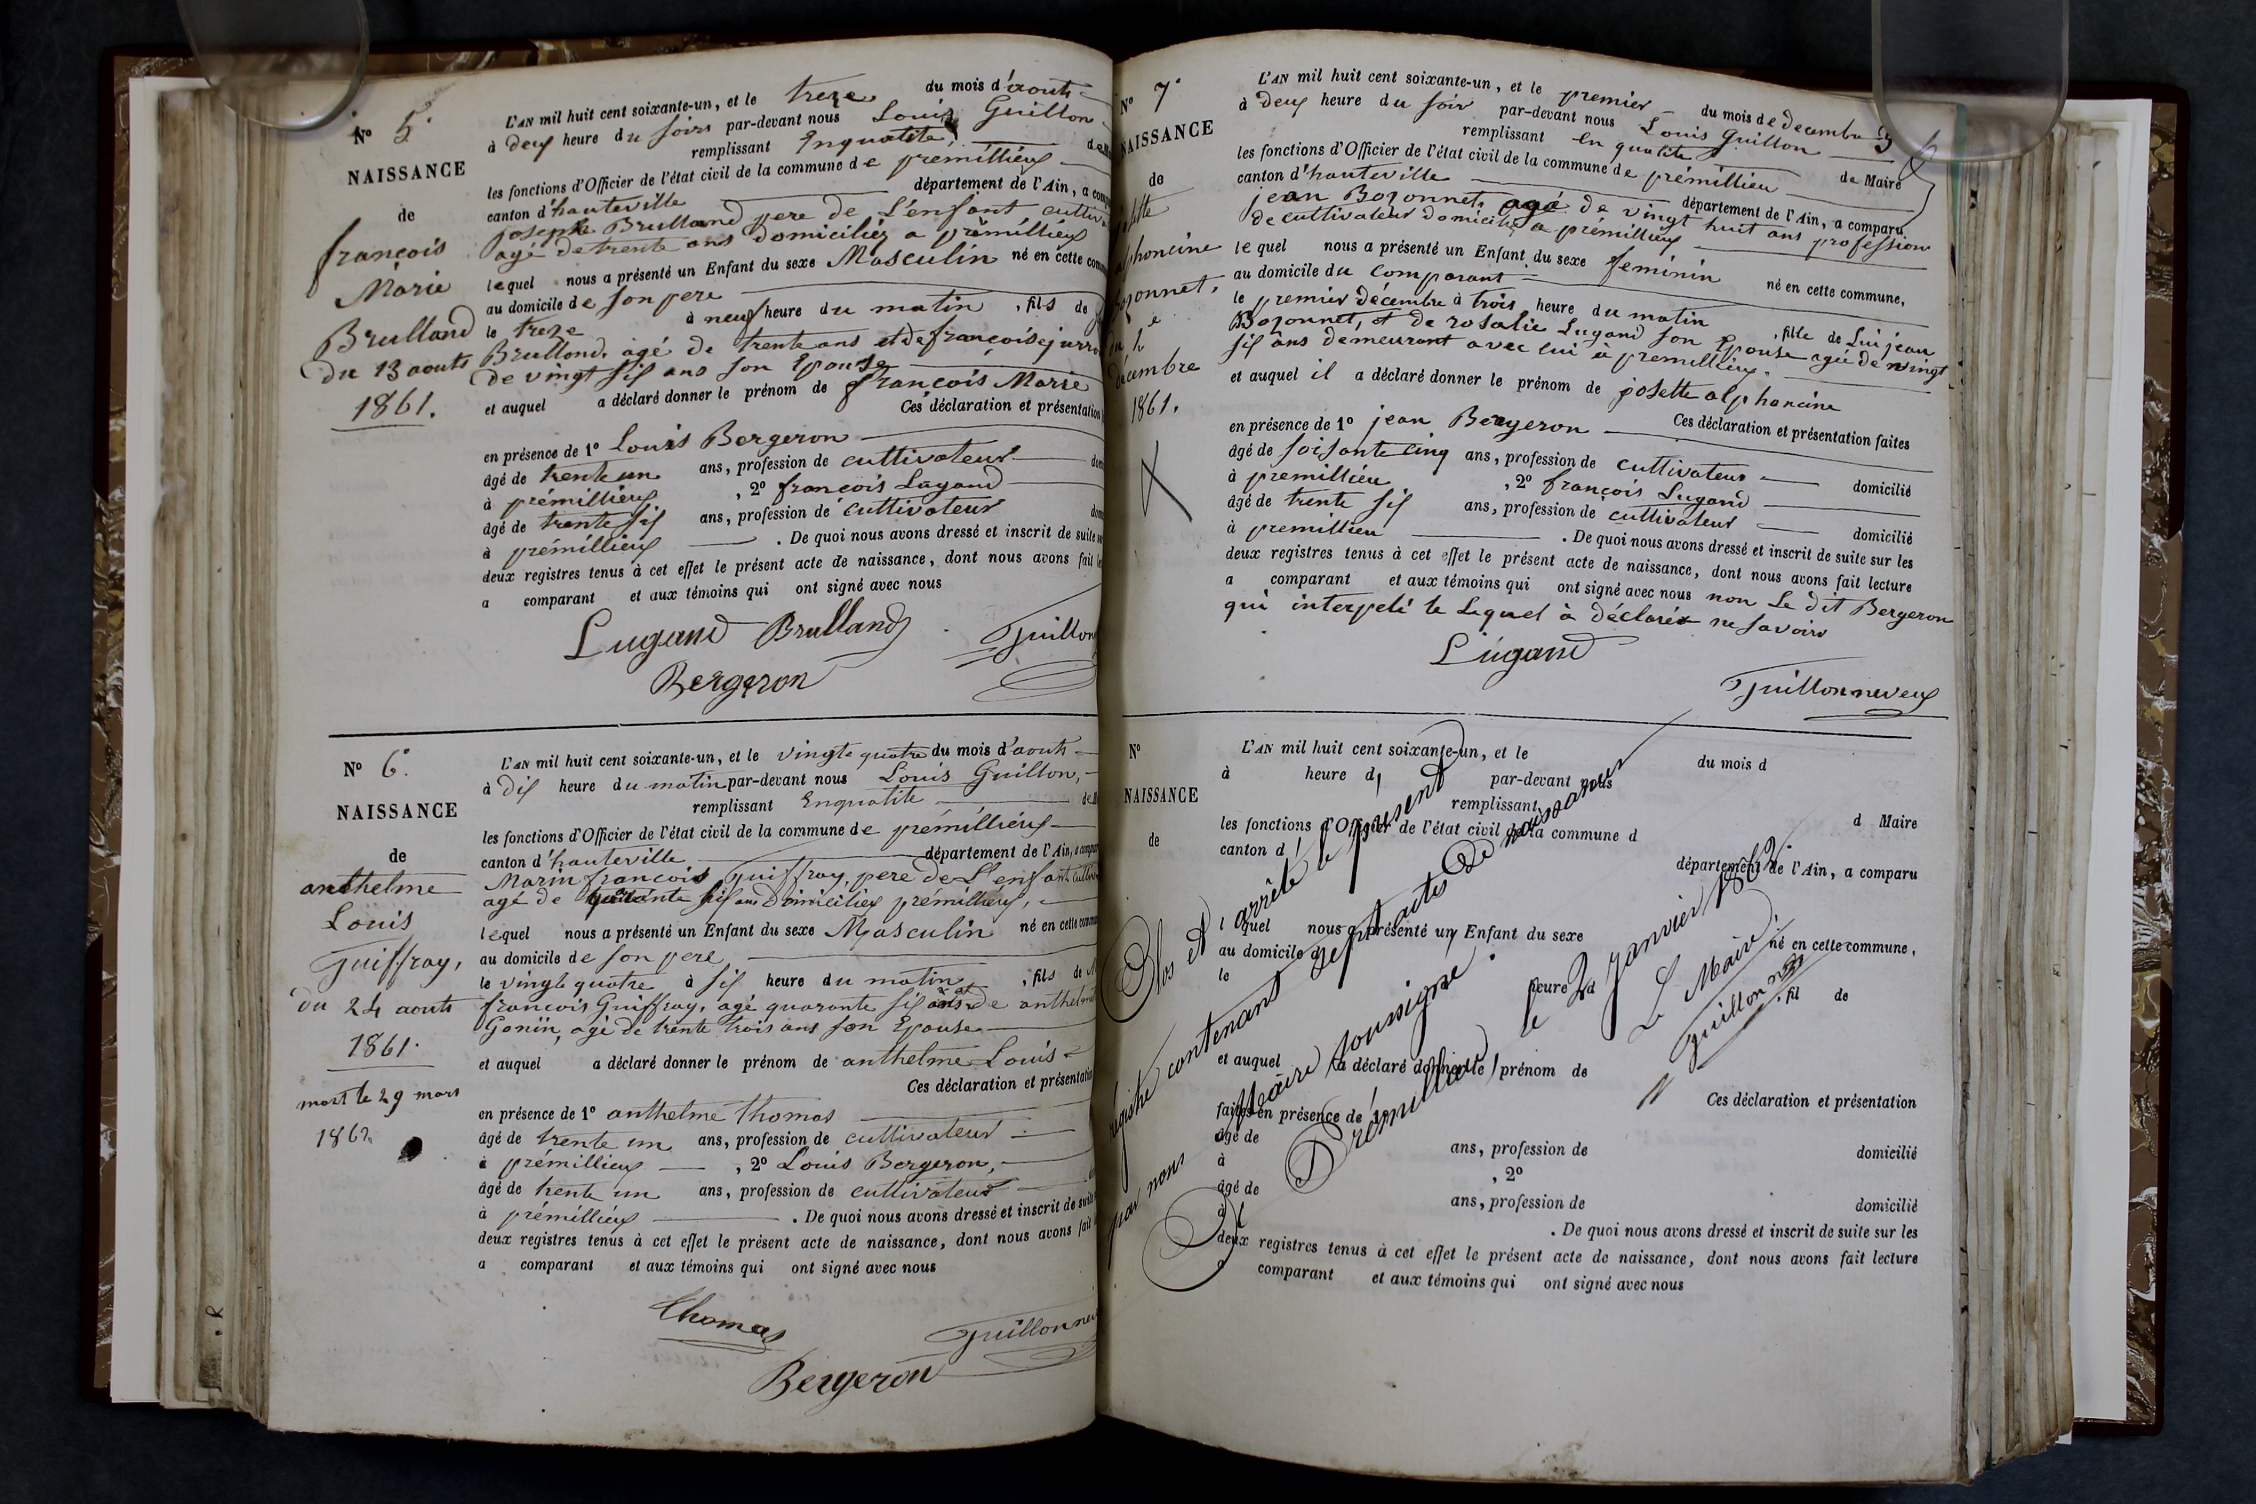 N° 5
NAISSANCE
de
françois
Marie
Brulland
du 13 aouts
1861.
L'AN mil huit cent soixante-un, et le treze du mois d'aouts
à deux heure du soirs par-devant nous Louis Guillon
remplissant Enqualite
les fonctions d'Officier de l'état civil de la commune de prémillieux
canton d'hauteville département de l'Ain, a
joseph Brulland pere de L'enfant
agé de trente ans domiciliez a prémillieux
lequel nous a présenté un Enfant du sexe Masculin né en cette
au domicile de son pere
le treze à neuf heure du matin, fils de
Brulland, agé de trente ans et de françoise
de vingt six ans son Epouse
et auquel a déclaré donner le prénom de françois Marie
Ces déclaration et présentation
en présence de 1° Louis Bergeron
âgé de trente un ans, profession de cultivateur
à prémillieux, 2° françois Lugand
âgé de trente six ans, profession de cultivateur
à prémillieux. De quoi nous avons dressé et inscrit de suite
deux registres tenus à cet effet le présent acte de naissance, dont nous avons fait
a comparant et aux témoins qui ont signé avec nous
Lugand Brulland Guillon
Bergeron
N° 6
NAISSANCE
de
anthelme
Louis
Guiffray,
du 24 aouts
1861.
mort le 29 mars
1862
L'AN mil huit cent soixante-un, et le vingte quatre du mois d'aouts
à dix heure du matin par-devant nous Louis Guillon,
remplissant Enqualite
les fonctions d'Officier de l'état civil de la commune de prémillieux
canton d'hauteville département de l'Ain, a
Marin françois Guiffray, pere de L'enfant
agé de six ans Domiciliez prémillieux,
lequel nous a présenté un Enfant du sexe Masculin né en cette
au domicile de son pere
le vingte quatre à six heure du matin, fils de
françois Guiffray, agé quarante six ans et de
Gonin, agé de trente trois ans son Epouse
et auquel a déclaré donner le prénom de anthelme Louis
Ces déclaration et présentation
en présence de 1° anthelme Thomas
âgé de trente un ans, profession de cultivateur
à prémillieux, 2° Louis Bergeron,
âgé de trente un ans, profession de cultivateur
à prémillieux. De quoi nous avons dressé et inscrit de suite
deux registres tenus à cet effet le présent acte de naissance, dont nous avons fait
a comparant et aux témoins qui ont signé avec nous
Thomas
Bergeron
N° 7
NAISSANCE
de
décembre
1861.
L'AN mil huit cent soixante-un, et le premier du mois de decembre
à deux heure du soir par-devant nous Louis Guillon
remplissant en qualite de Maire
les fonctions d'Officier de l'état civil de la commune de prémillieu
canton d'hauteville département de l'Ain, a comparu
jean Bozonnet, agé de vingt huit ans profession
de cultivateur domicilié a prémillieux
lequel nous a présenté un Enfant du sexe feminin né en cette commune,
au domicile du comparant
le premier décembre à trois heure du matin, fille de Lui jean
Bozonnet, et de rosalie Lugand son Epouse agée de vingt
six ans demeurant avec lui à premillieux.
et auquel il a déclaré donner le prénom de josette alphoncine
Ces déclaration et présentation faites
en présence de 1° jean Bergeron
âgé de soixante cinq ans, profession de cultivateur domicilié
à premillieu, 2° françois Lugand
âgé de trente six ans, profession de cultivateur domicilié
à premillieu. De quoi nous avons dressé et inscrit de suite sur les
deux registres tenus à cet effet le présent acte de naissance, dont nous avons fait lecture
a comparant et aux témoins qui ont signé avec nous non Le dit Bergeron
qui interpelé le Lequel à déclaré ne savoir
Lugand
Guillon neveux
N°
NAISSANCE
de
L'AN mil huit cent soixante-un, et le du mois d
à heure d par-devant nous
remplissant d Maire
les fonctions d'Officier de l'état civil de la commune d
canton d département de l'Ain, a comparu
l quel nous a présenté un Enfant du sexe né en cette commune,
au domicile d
le heure d, fil de
et auquel a déclaré donner le prénom de
Ces déclaration et présentation
faites en présence de 1°
âgé de ans, profession de domicilié
à, 2°
âgé de ans, profession de domicilié
à. De quoi nous avons dressé et inscrit de suite sur les
deux registres tenus à cet effet le présent acte de naissance, dont nous avons fait lecture
a comparant et aux témoins qui ont signé avec nous
Clos et arrêté le présent
registre contenant sept actes de naissances
par nous Maire soussigné.
Prémillieu le janvier 1862
Le Maire
Guillon